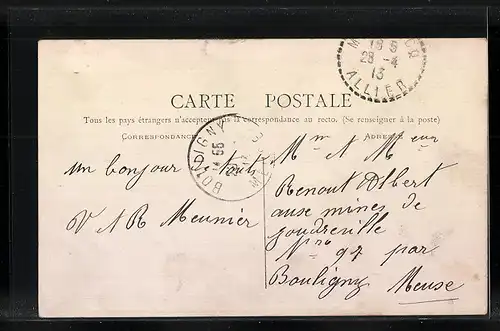 28 -4
13
ALLIER
CARTE POSTALE
Tous les pays étrangers n'acceptent pas la correspondance au recto. (Se renseigner à la poste)
CORRESPONDANCE
ADRESSE
BOULIGNY
MEUSE
un bonjour a tous
V et R Meunier
Mme et Meur
Renout Albert
ause mines de
joudreville
Nro 97 par
Bouligny Meuse